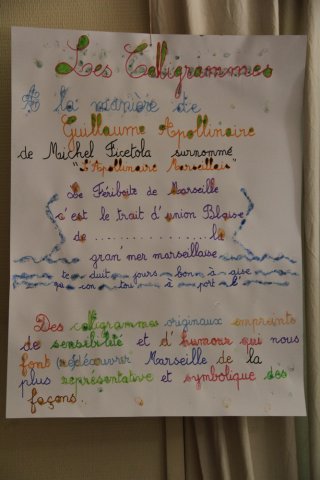 Les Caligrammes
A la manière de
Guillaume Apollinaire
de Michel Ficetola surnommé
"L'Apollinaire Marseillais"
Le Fériboite de Marseille
c'est le trait d'union Blaise
de .................. la
gran'mer marsellaise
te duit jours bon à aise
que con tou à port l'
Des caligrammes originaux emprunts
de sensibilité et d'humour qui nous
font (re)découvrir Marseille de la
plus représentative et symbolique des
façons..